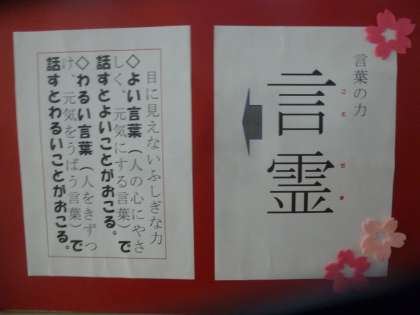 言葉の力
言霊
ことだま
目に見えないふしぎな力
◇よい言葉(人の心にやさ
しく、元気にする言葉)で
話すとよいことがおこる。
◇わるい言葉(人をきずつ
け、元気をうばう言葉)で
話すとわるいことがおこる。